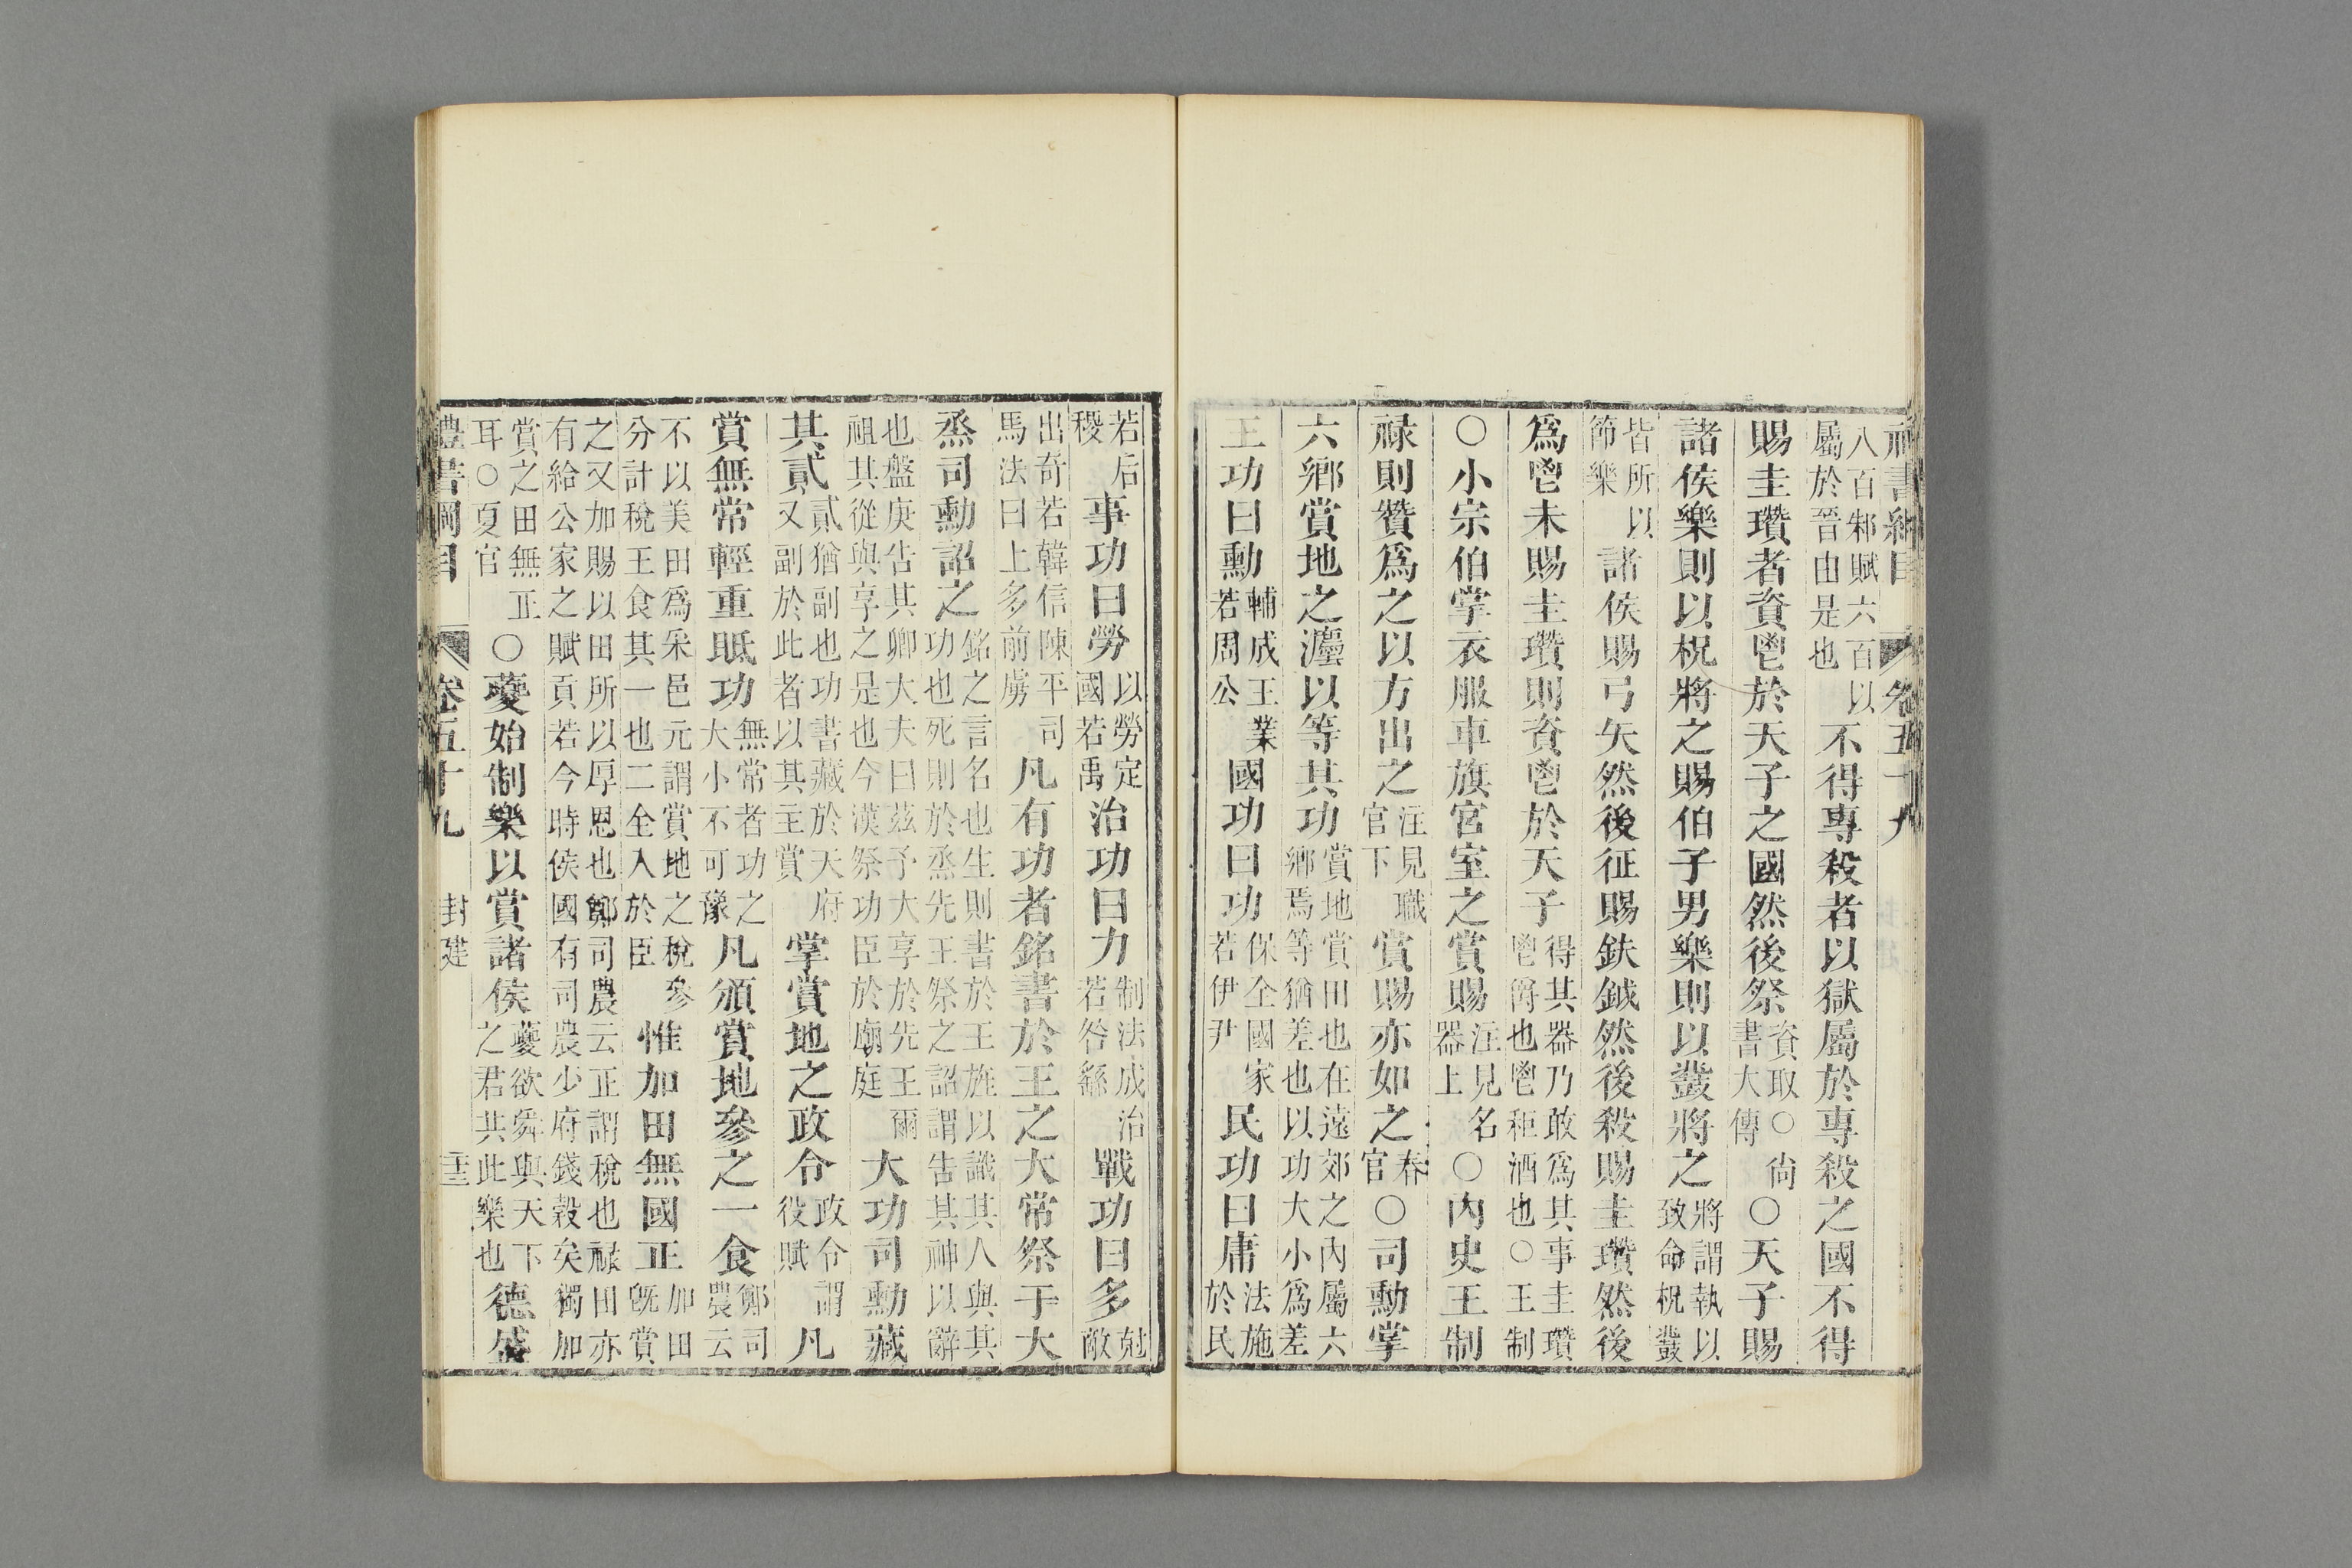 八百邾賦六百以
屬於晉由是也
不得專殺者以獄屬於專殺之國不得
賜圭瓚者資鬯於天子之國然後祭
資取○尙
書大傳
○天子賜
諸侯樂則以柷將之賜伯子男樂則以鼗將之
將謂執以
致命柷鼗
皆所以
節樂
諸侯賜弓矢然後征賜鈇鉞然後殺賜圭瓚然後
爲鬯未賜圭瓚則資鬯於天子
得其器乃敢爲其事圭瓚
鬯爵也鬯秬酒也○王制
○小宗伯掌衣服車旗宮室之賞賜
注見名
器上
○內史王制
祿則贊爲之以方出之
注見職
官下
賞賜亦如之
春
官
○司勳掌
六鄉賞地之灋以等其功
賞地賞田也在遠郊之內屬六
鄉焉等猶差也以功大小爲差
王功曰勳
輔成王業
若周公
國功曰功
保全國家
若伊尹
民功曰庸
法施
於民
若后
稷
事功曰勞
以勞定
國若禹
治功曰力
制法成治
若咎繇
戰功曰多
尅
敵
出奇若韓信陳平司
馬法曰上多前虜
凡有功者銘書於王之大常祭于大
烝司勳詔之
銘之言名也生則書於王旌以識其人與其
功也死則於烝先王祭之詔謂告其神以辭
也盤庚告其卿大夫曰茲予大享於先王爾
祖其從與享之是也今漢祭功臣於廟庭
大功司勳藏
其貳
貳猶副也功書藏於天府
又副於此者以其主賞
掌賞地之政令
政令謂
役賦
凡
賞無常輕重眡功
無常者功之
大小不可豫
凡頒賞地參之一食
鄭司
農云
不以美田爲采邑元謂賞地之稅參
分計稅王食其一也二全入於臣
惟加田無國正
加田
旣賞
之又加賜以田所以厚恩也鄭司農云正謂稅也祿田亦
有給公家之賦貢若今時侯國有司農少府錢穀矣獨加
賞之田無正
耳○夏官
○夔始制樂以賞諸侯
夔欲舜與天下
之君共此樂也
德盛
禮書綱目
卷五十九
封建